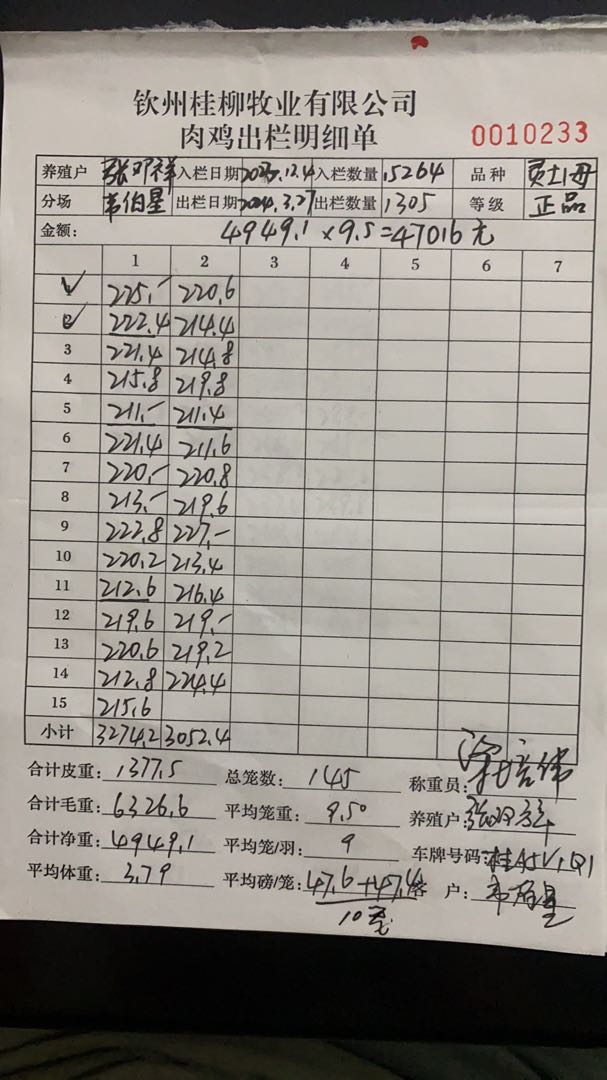 钦州桂柳牧业有限公司
肉鸡出栏明细单
0010233
养殖户 张邓祥 入栏日期 2023.12.4 入栏数量 15264 品种
分场 韦伯星 出栏日期 2024.3.27 出栏数量 1305 等级 正品
金额: 4949.1×9.5=47016元
1 2 3 4 5 6 7
1 225.- 220.6
2 222.4 214.4
3 221.4 214.8
4 215.8 219.8
5 211.- 211.4
6 221.4 211.6
7 220.- 220.8
8 213.- 219.6
9 222.8 227.-
10 220.2 213.4
11 212.6 216.4
12 219.6 219.-
13 220.6 219.2
14 212.8 224.4
15 215.6
小计 3274.2 3052.4
合计皮重: 1377.5 总笼数: 145 称重员:
合计毛重: 6326.6 平均笼重: 9.50 养殖户:
合计净重: 4949.1 平均笼/羽: 9 车牌号码:
平均体重: 3.79 平均磅/笼: 47.6+47.4 客户: 韦伯星
10毛